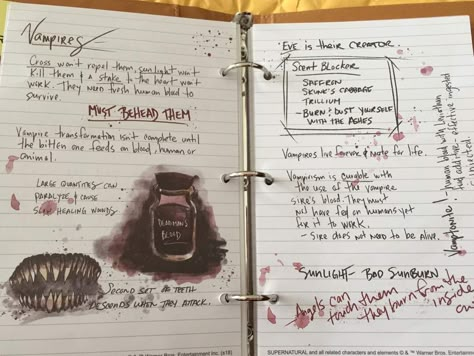 Vampires
Cross won't repel them, sunlight won't
kill them & a stake to the heart won't
work. They need fresh human blood to
survive.
MUST BEHEAD THEM
Vampire transformation isn't complete until
the bitten one feeds on blood, human or
animal.
LARGE QUANTITIES CAN
PARALYZE & CAUSE
SLOW HEALING WOUNDS
DEADMAN'S
BLOOD
SECOND SET OF TEETH
DESCENDS WHEN THEY ATTACK.
Warner Bros. Entertainment Inc. (s18)
EVE IS THEIR CREATOR
SCENT BLOCKER
SAFFRON
SKUNK'S CABBAGE
TRILLIUM
- BURN & DUST YOURSELF
WITH THE ASHES
Vampires live forever & mate for life.
Vampirism is curable with
the use of the vampire
sire's blood. They must
not have fed on humans yet
for it to work.
- Sire does not need to be alive.
Vamptonite! human blood with Leviathan
additive. effective ingested
injected
SUNLIGHT - BAD SUNBURN
Angels can
touch them
they burn from the
inside
SUPERNATURAL and all related characters and elements © & ™ Warner Bros.